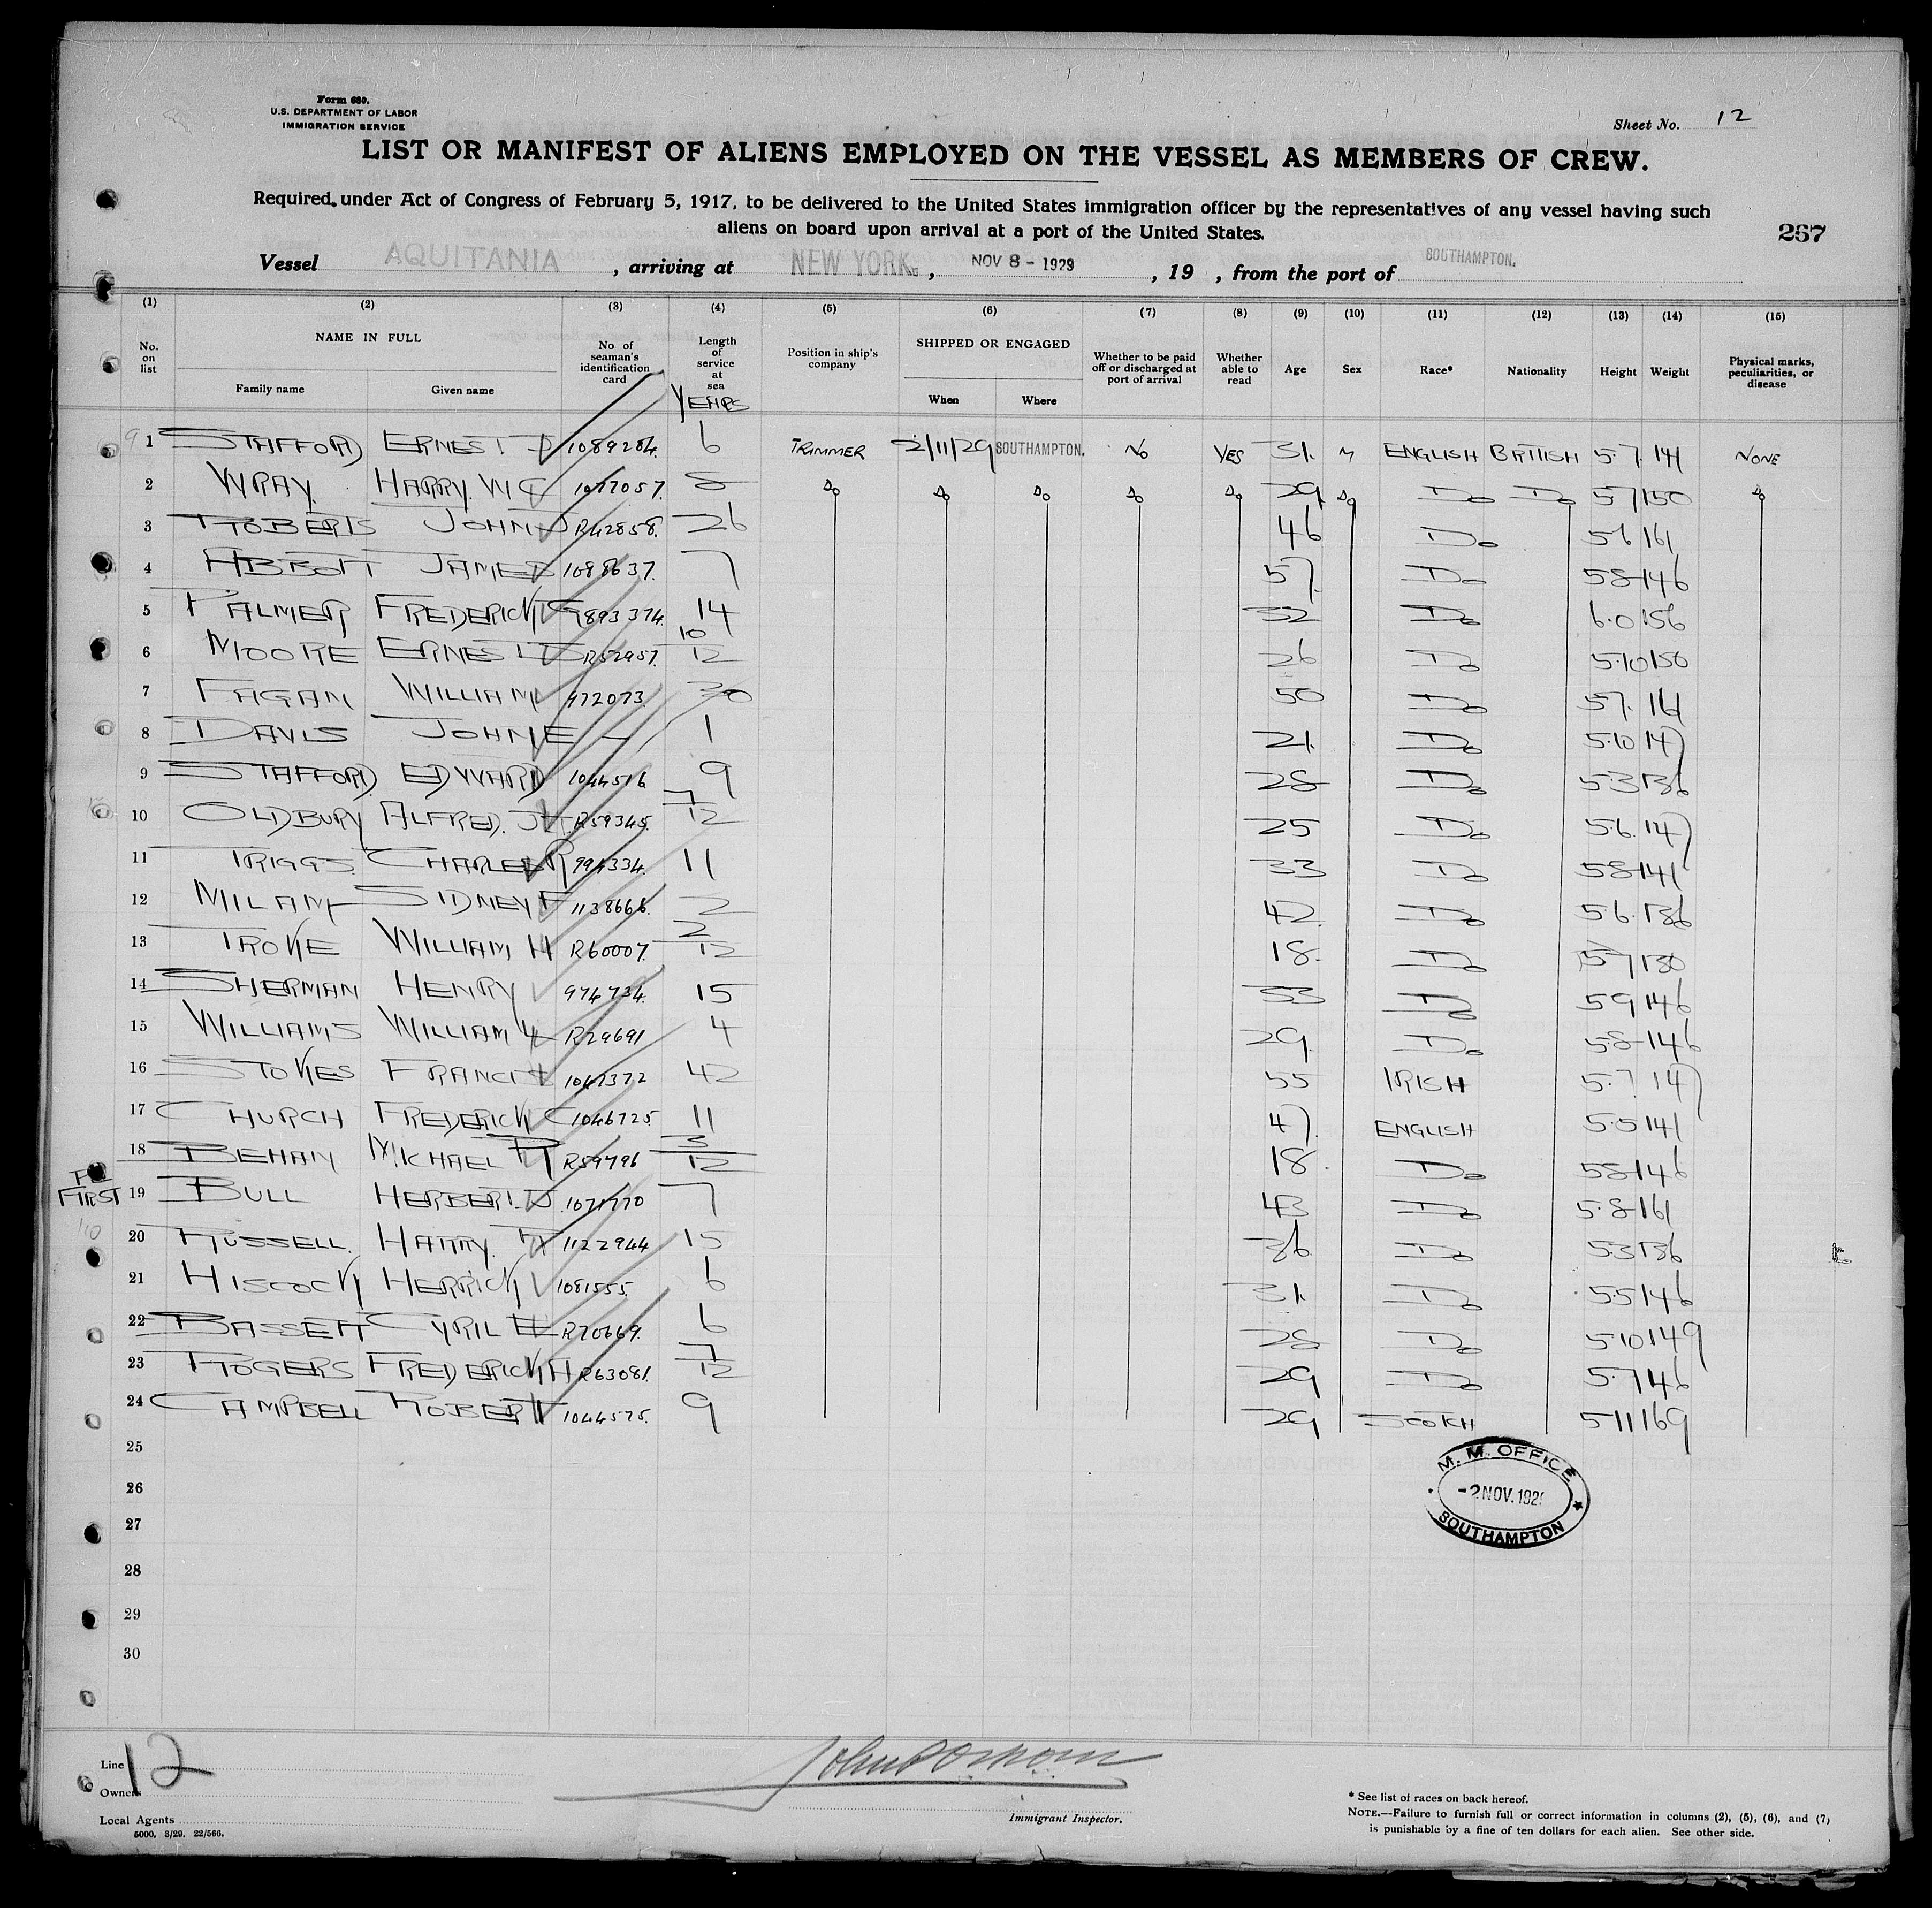 Form 680.
U.S. DEPARTMENT OF LABOR
IMMIGRATION SERVICE
Sheet No. 12
LIST OR MANIFEST OF ALIENS EMPLOYED ON THE VESSEL AS MEMBERS OF CREW.
Required under Act of Congress of February 5, 1917, to be delivered to the United States immigration officer by the representatives of any vessel having such
aliens on board upon arrival at a port of the United States.
267
Vessel AQUITANIA, arriving at NEW YORK, NOV 8 - 1929, 19 , from the port of SOUTHAMPTON.
(1) (2) (3) (4) (5) (6) (7) (8) (9) (10) (11) (12) (13) (14) (15)
No. on list NAME IN FULL Family name Given name No. of seaman's identification card Length of service at sea YEARS Position in ship's company SHIPPED OR ENGAGED When Where Whether to be paid off or discharged at port of arrival Whether able to read Age Sex Race* Nationality Height Weight Physical marks, peculiarities, or disease
1 STAFFORD ERNEST D 1089284. 6 TRIMMER 2/11/29 SOUTHAMPTON. No YES 31. M ENGLISH BRITISH 5.7. 141 NONE
2 WRAY. HARRY. W G 1077057. 8 Do Do Do Do Do 29 Do Do Do 5 7 150 Do
3 ROBERTS JOHN J R42858. 26 46 Do 5 6 161
4 ABBOTT JAMES 1088637. 7 57. Do 5 8 146
5 PALMER FREDERICK C 893374. 14 32 Do 6.0 156
6 MOORE ERNEST J R52957. 10/12 26 Do 5.10 156
7 FAGAN WILLIAM 972073. 30 50 Do 5 7. 161
8 DAVIS JOHN E — 1 21. Do 5.10 147
9 STAFFORD EDWARD 1044516 9 28 Do 5.3 136
10 OLDBURY ALFRED. J H. R59345. 7/12 25 Do 5.6. 147
11 TRIGGS CHARLES R 994334. 11 33 Do 5 8 141
12 MILAM SIDNEY F 1138666. 2 42. Do 5.6. 136
13 TROKE WILLIAM H R60007. 2/12 18. Do 5 7 130
14 SHERMAN HENRY 974734. 15 33 Do 5 9 146
15 WILLIAMS WILLIAM W R29691 4 29. Do 5.8 146
16 STOKES FRANCIS 1047372 42 55 IRISH 5.7 147
17 CHURCH FREDERICK C 1046725 11 47. ENGLISH 5.5 141
18 BEHAN MICHAEL P R59796 3/12 18. Do 5 8 146
FIRST 19 BULL HERBERT. J 1071770 7 43 Do 5.8 161
20 RUSSELL. HARRY. A 1122944 15 36 Do 5.3 136
21 HISCOCK HERRICK 1081555. 6 31. Do 5.5 146
22 BASSETT CYRIL E R70669. 6 28 Do 5 10 149
23 ROGERS FREDERICK H R63081. 7/12 29 Do 5.7 146
24 CAMPBELL ROBERT 1044575. 9 29 SCOTCH 5 11 169
25
26
27
28
29
30
M. M. OFFICE
- 2 NOV. 1929
SOUTHAMPTON
Line 12
Owners
Local Agents
5000. 3/29. 22/566.
Immigrant Inspector.
* See list of races on back hereof.
NOTE.—Failure to furnish full or correct information in columns (2), (5), (6), and (7),
is punishable by a fine of ten dollars for each alien. See other side.